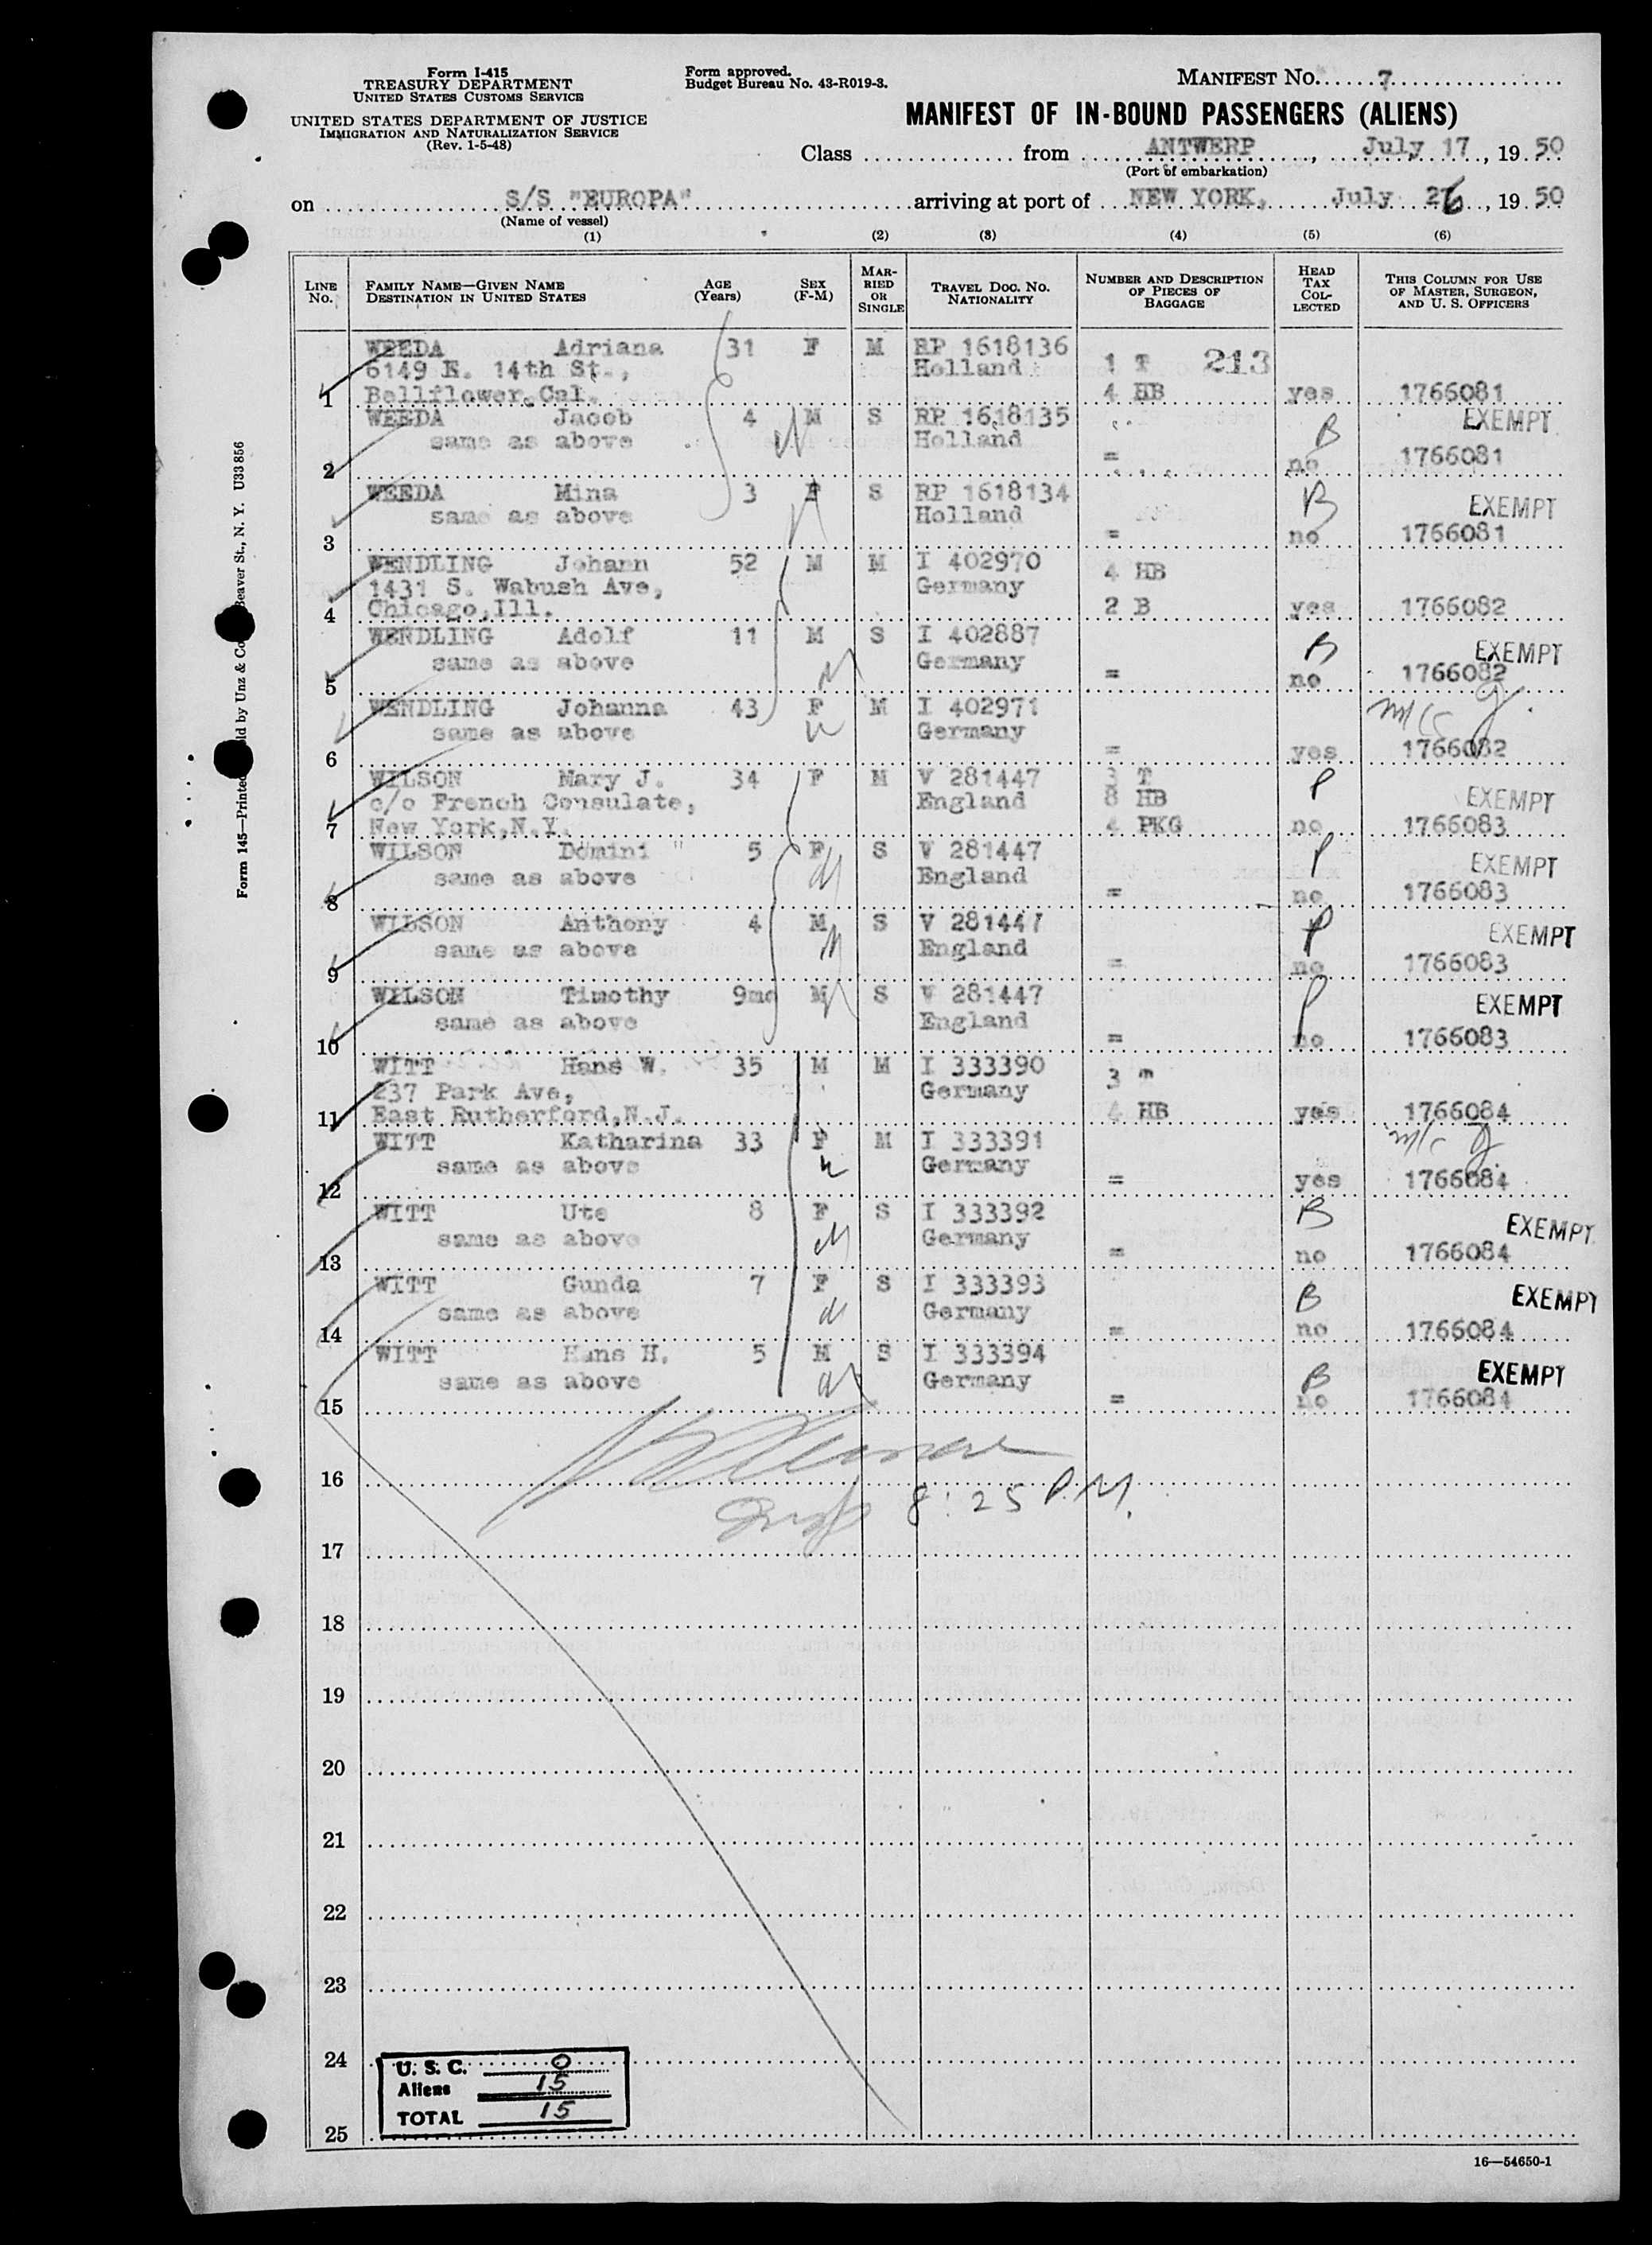 Form I-415
TREASURY DEPARTMENT
UNITED STATES CUSTOMS SERVICE
UNITED STATES DEPARTMENT OF JUSTICE
IMMIGRATION AND NATURALIZATION SERVICE
(Rev. 1-5-48)
Form approved.
Budget Bureau No. 43-R019-3.
MANIFEST NO. 7
MANIFEST OF IN-BOUND PASSENGERS (ALIENS)
Class from ANTWERP, July 17, 19 50
(Port of embarkation)
on S/S "EUROPA" arriving at port of NEW YORK, July 26, 19 50
(Name of vessel)
(1) (2) (3) (4) (5) (6)
LINE NO. FAMILY NAME—GIVEN NAME DESTINATION IN UNITED STATES AGE (Years) SEX (F-M) MARRIED OR SINGLE TRAVEL DOC. NO. NATIONALITY NUMBER AND DESCRIPTION OF PIECES OF BAGGAGE HEAD TAX COLLECTED THIS COLUMN FOR USE OF MASTER, SURGEON, AND U. S. OFFICERS
WEEDA Adriana 31 F M RP 1618136
6149 E. 14th St., Holland 1 T 213
1 Bellflower, Cal. 4 HB yes 1766081
WEEDA Jacob 4 M S RP 1618135 EXEMPT
same as above Holland B
2 = no 1766081
WEEDA Mina 3 F S RP 1618134 B EXEMPT
same as above Holland
3 = no 1766081
WENDLING Johann 52 M M I 402970 4 HB
1431 S. Wabush Ave, Germany
4 Chicago, Ill. 2 B yes 1766082
WENDLING Adolf 11 M S I 402887 B EXEMPT
same as above Germany
5 = no 1766082
WENDLING Johanna 43 F M I 402971
same as above Germany
6 = yes 1766082
WILSON Mary J. 34 F M V 281447 3 T P
c/o French Consulate, England 8 HB EXEMPT
7 New York, N.Y. 4 PKG no 1766083
WILSON Domini " 5 F S V 281447 P EXEMPT
same as above England
8 = no 1766083
WILSON Anthony 4 M S V 281447 P EXEMPT
same as above England
9 = no 1766083
WILSON Timothy 9mo M S V 281447 P EXEMPT
same as above England
10 = no 1766083
WITT Hans W. 35 M M I 333390 3 T
237 Park Ave, Germany
11 East Rutherford, N.J. 4 HB yes 1766084
WITT Katharina 33 F M I 333391
same as above Germany
12 = yes 1766084
WITT Ute 8 F S I 333392 B EXEMPT
same as above Germany
13 = no 1766084
WITT Gunda 7 F S I 333393 B EXEMPT
same as above Germany
14 = no 1766084
WITT Hans H. 5 M S I 333394 EXEMPT
same as above Germany B
15 = no 1766084
16
8:25 P.M.
17
18
19
20
21
22
23
24
U. S. C. 0
Aliens 15
TOTAL 15
25
16—54650-1
Form 145—Printed Sold by Unz & Co Beaver St., N. Y. U33856